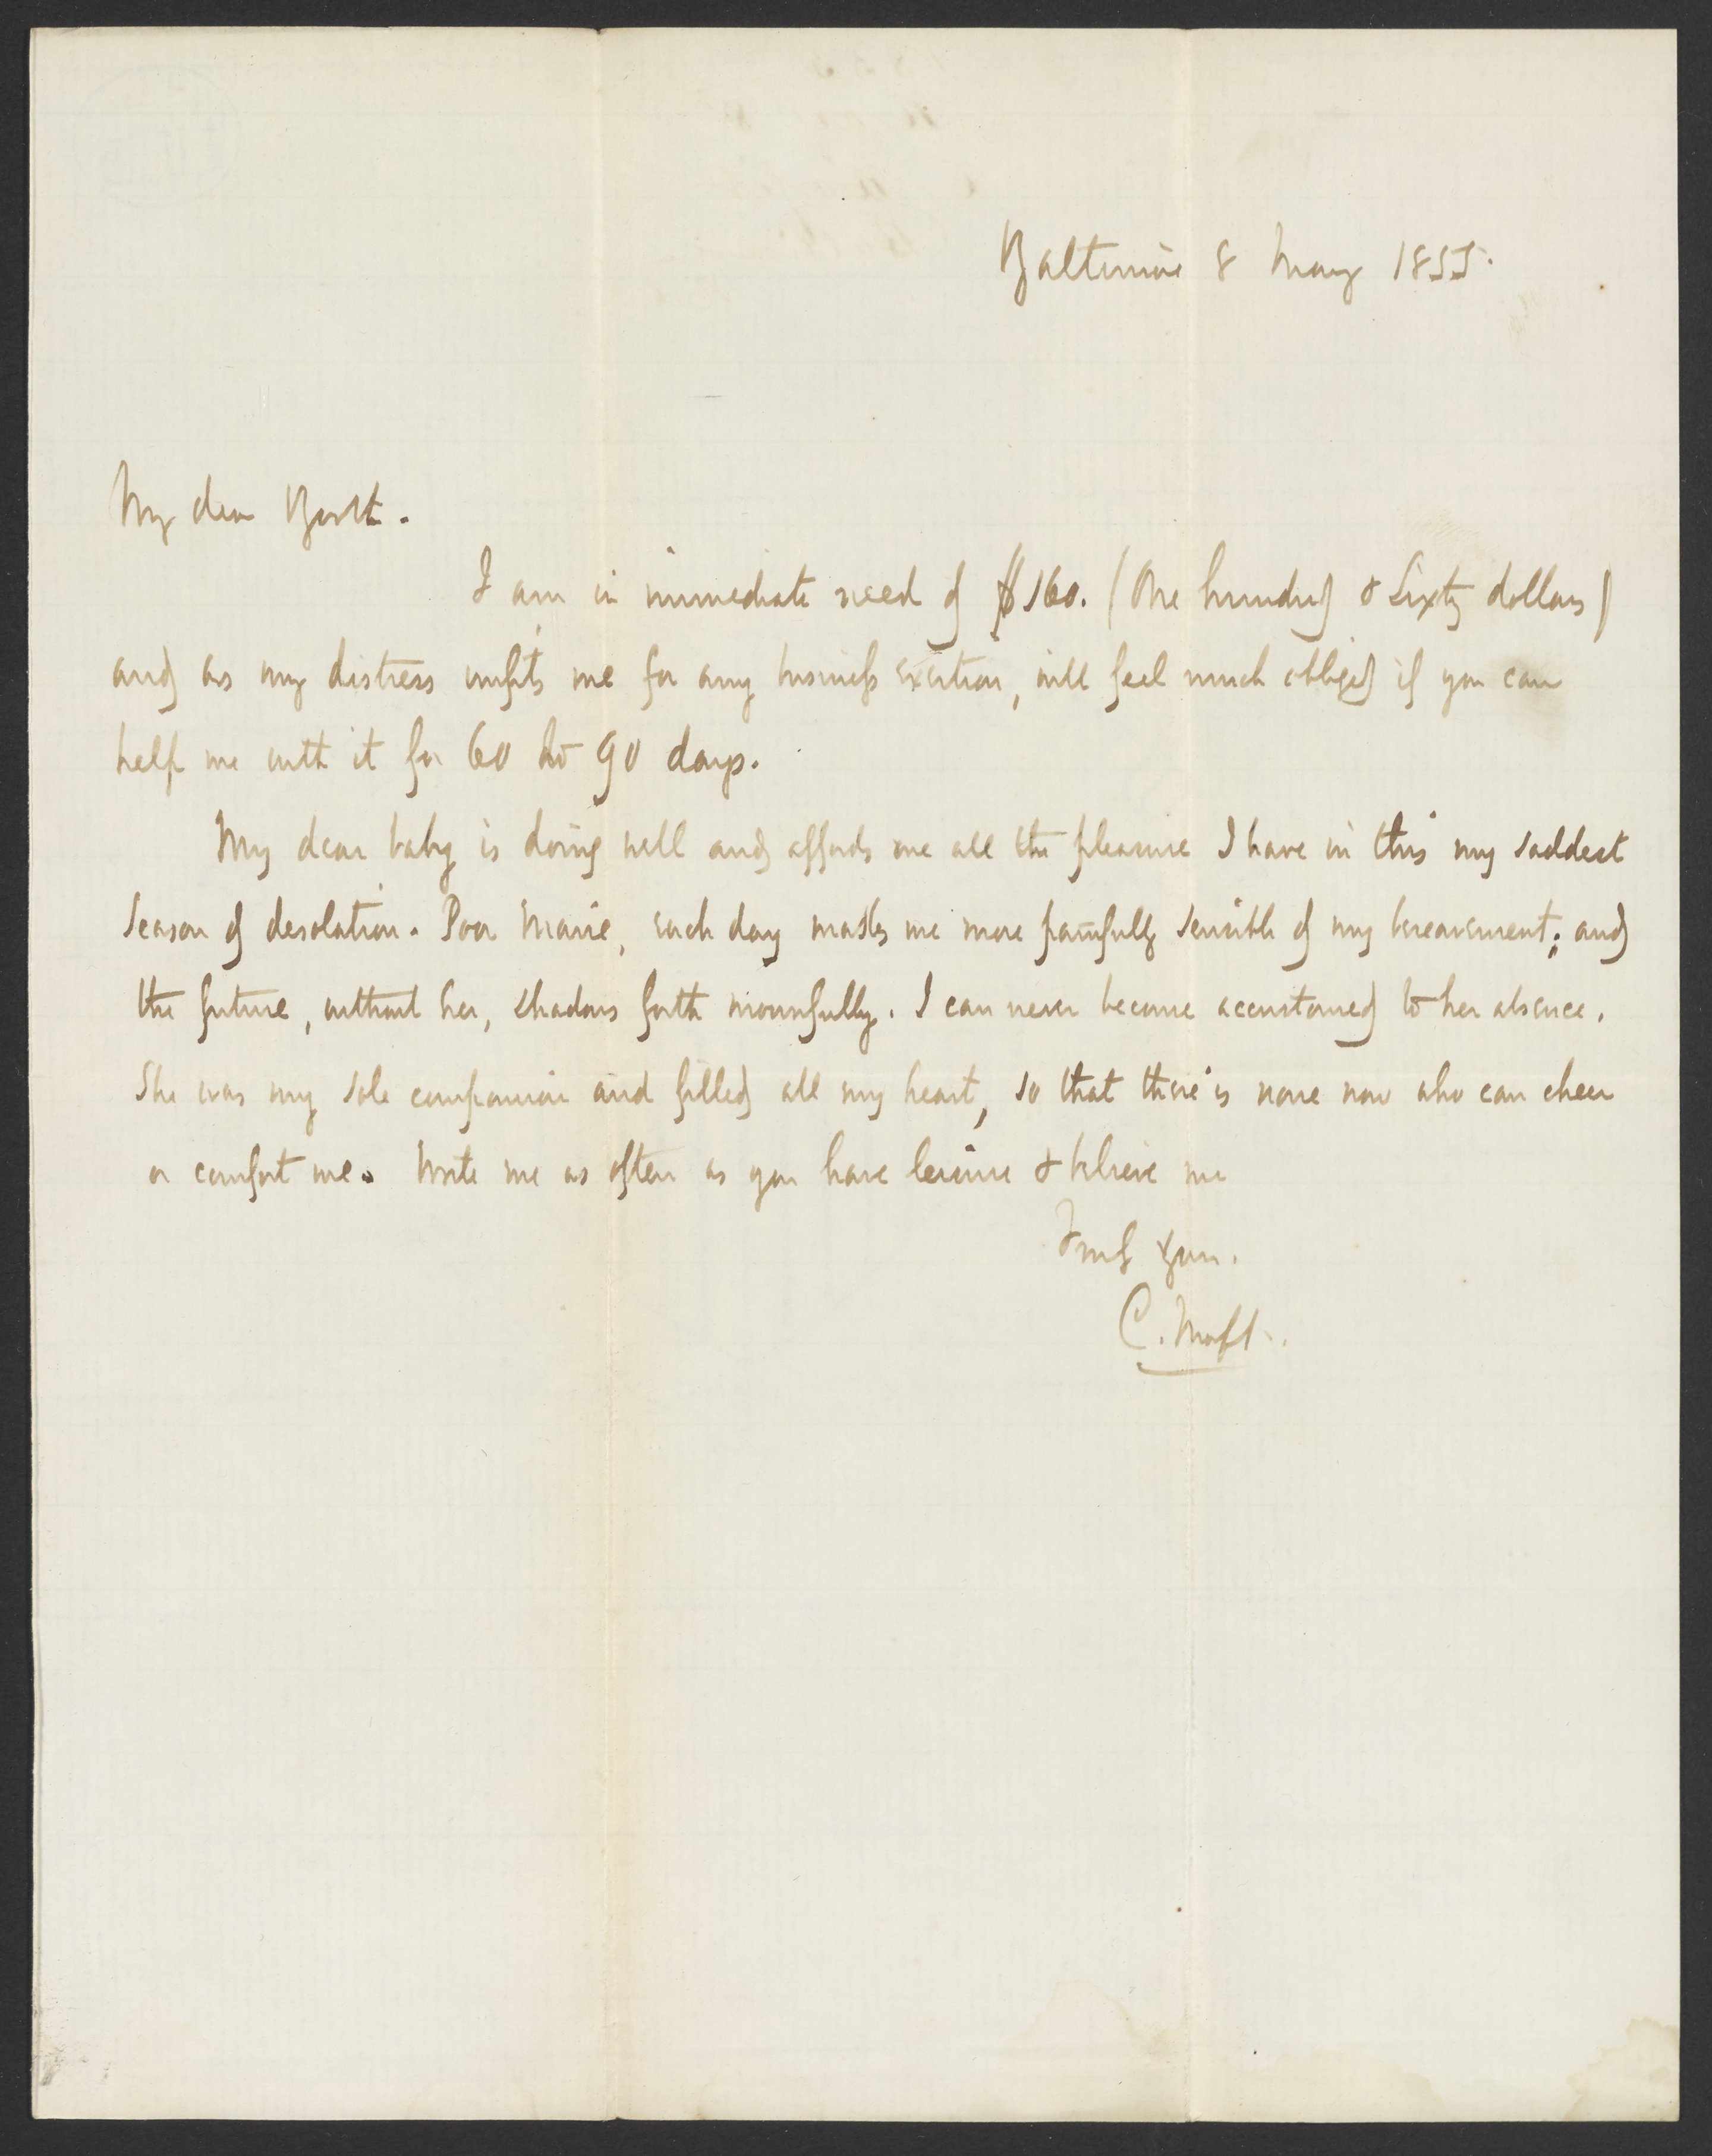 Baltimore 8 May 1855.
My dear Barth.
I am in immediate need of $160. (One hundred & Sixty dollars)
and as my distress unfits me for any business exertion, will feel much obliged if you can
help me with it for 60 to 90 days.
My dear baby is doing well and affords me all the pleasure I have in this my saddest
season of desolation. Poor Marie, each day makes me more painfully sensible of my bereavement; and
the future, without her, shadows forth mournfully. I can never become accustomed to her absence.
She was my sole companion and filled all my heart, so that there is none now who can cheer
or comfort me. Write me as often as you have leisure & believe me
Truly Yours.
C.